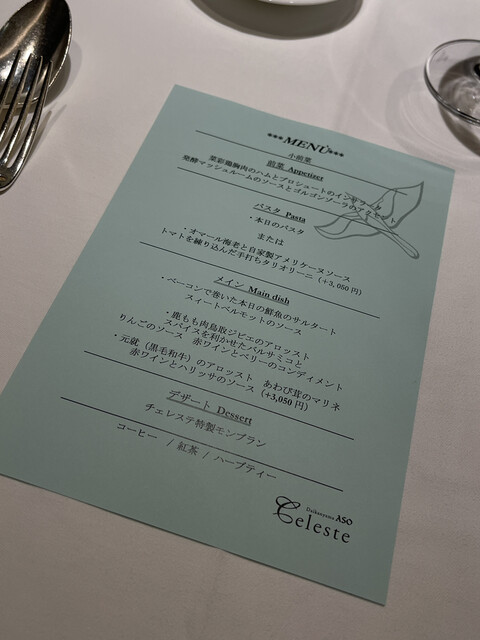 ***MENU***
小前菜
前菜 Appetizer
菜彩鶏胸肉のハムとプロシュートのインサラータ
発酵マッシュルームのソースとゴルゴンゾーラのアクセント
パスタ Pasta
・本日のパスタ
または
・オマール海老と自家製アメリケーヌソース
トマトを練り込んだ手打ちタリオリーニ (+3,050 円)
メイン Main dish
・ベーコンで巻いた本日の鮮魚のサルタート
スイートベルモットのソース
・鹿もも肉鳥取ジビエのアロッスト
スパイスを利かせたバルサミコと
りんごのソース 赤ワインとベリーのコンディメント
・元就 (黒毛和牛) のアロッスト あわび茸のマリネ
赤ワインとハリッサのソース (+3,050 円)
デザート Dessert
チェレステ特製モンブラン
コーヒー / 紅茶 / ハーブティー
Daikanyama ASO
Celeste